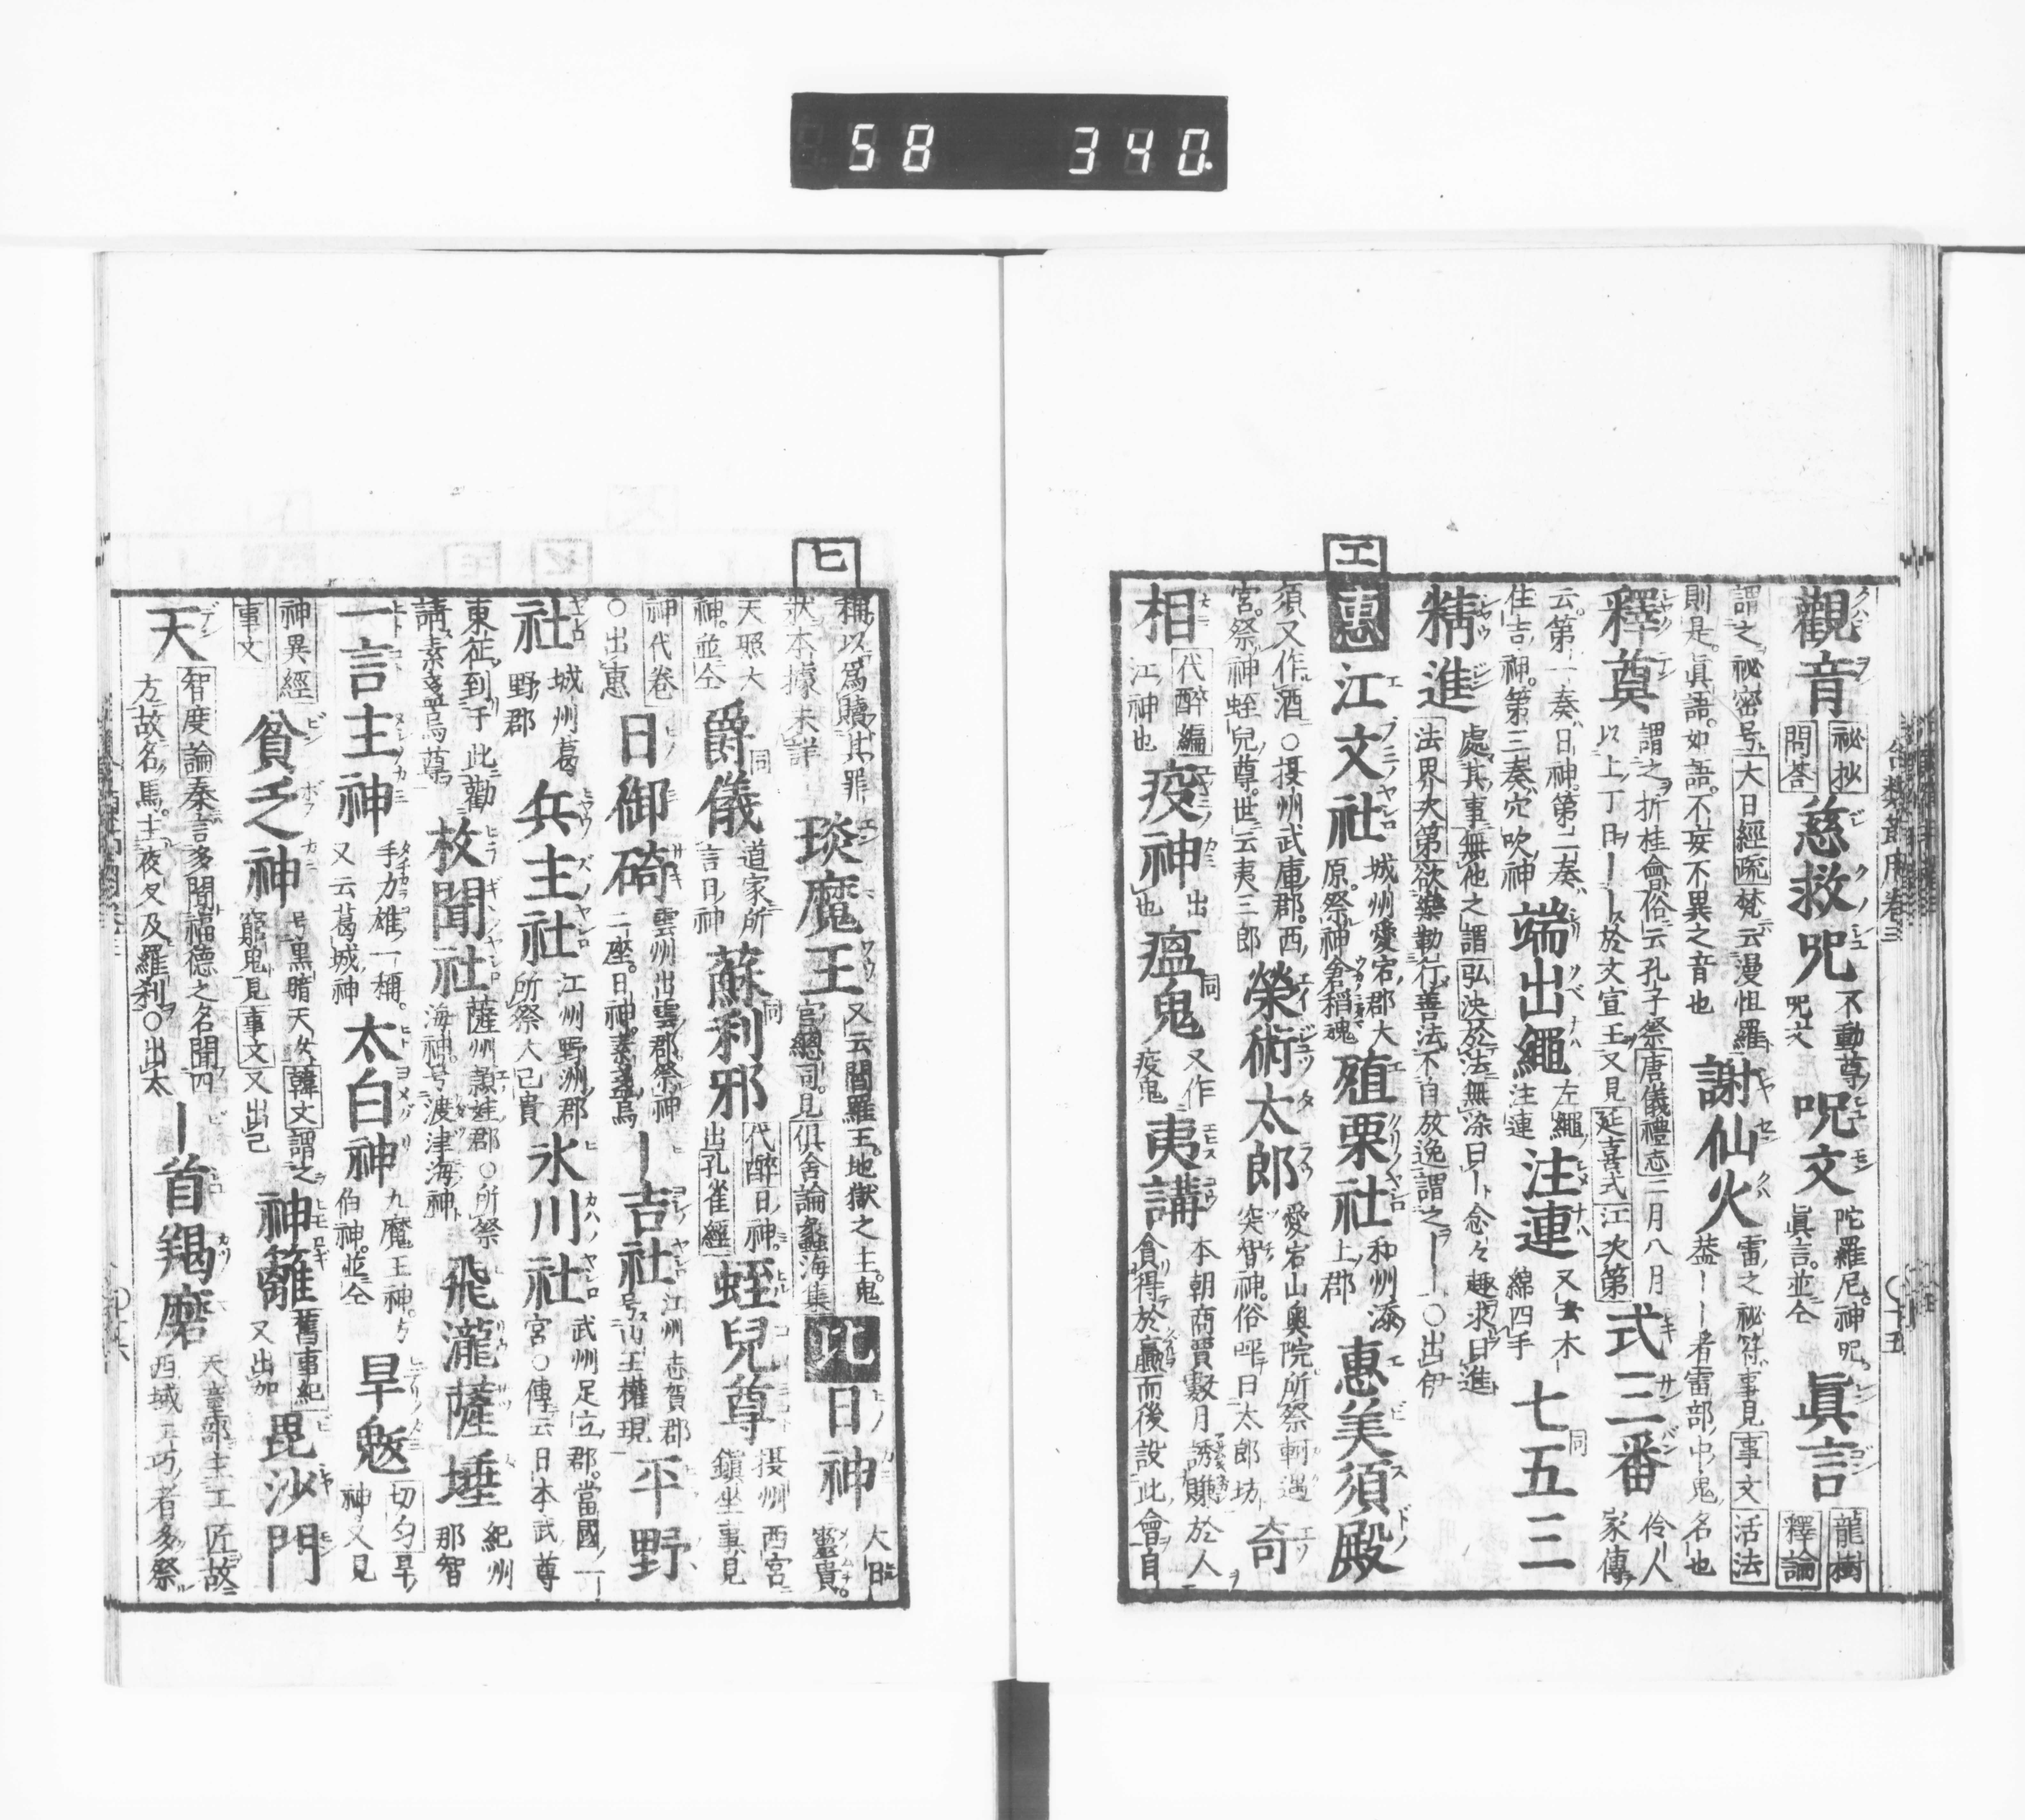 58 340
合類節用卷三
觀音 祕抄 問荅 慈救呪 不動尊呪文 呪文 陀羅尼神呪眞言並仝 眞言 龍樹釋論
謂之祕密号大日經疏梵云漫怛羅 謝仙火 雷之祕符事見事文活法
則是眞語如語不妄不異之音也 蓋——者雷部中鬼名也
釋奠 謂之折桂會俗云孔子祭唐儀禮志二月八月 以上丁日——於文宣王又見延喜式江次第 式三番 伶人家傳
云第一奏日神第二奏 住吉神第三奏穴吹神 端出繩 左繩注連 注連 又云木綿四手 七五三 同
精進 處其事無他之謂弘決於法無染曰—念々趣求曰進 法界次第欲樂勤行善法不自放逸謂之——○出伊
エ 惠 江文社 城州愛宕郡大原祭神倉稻魂 殖栗社 和州添上郡 惠美須殿
須又作酒○摂州武庫郡西宮祭神蛭兒尊世云夷三郎 榮術太郎 愛宕山奥院所祭軻遇突智神俗呼曰太郎坊 奇
相 代醉編江神也 疫神 出也 瘟鬼 同 又作疫鬼 夷講 本朝商賈數月誘賺於人貪得於贏而後設此會自
稱以爲贖其罪狀本據未詳 琰魔王 又云閻羅王地獄之主鬼官總司見倶舍論螽海集 ヒ 比 日神 大日孁貴
天照大神並仝 爵儀 同 道家所言日神 蘇利邪 同 代醉日神出孔雀經 蛭兒尊 摂州西宮鎭坐事見
神代卷○出惠 日御碕 雲州出雲郡祭神二座日神素盞烏 —吉社 江州志賀郡号山王權現 平野
社 城州葛野郡 兵主社 江州野洲郡所祭大己貴 氷川社 武州足立郡當國一—宮○傳云日本武尊
東征到于此勸請素盞烏尊 枚聞社 薩州頴娃郡○所祭海神号渡津海神 飛瀧薩埵 紀州那智
一言主神 手力雄一稱又云葛城神 太白神 九魔王神方伯神並仝 旱魃 切勻旱神又見
神異經事文 貧乏神 号黒暗天女韓文謂之窮鬼見事文又出己 神籬 舊事紀又出加 毘沙門
天 智度論秦言多聞福德之名聞四方故名焉主夜叉及羅刹○出太 —首羯磨 天童部主工匠故西域工巧者多祭